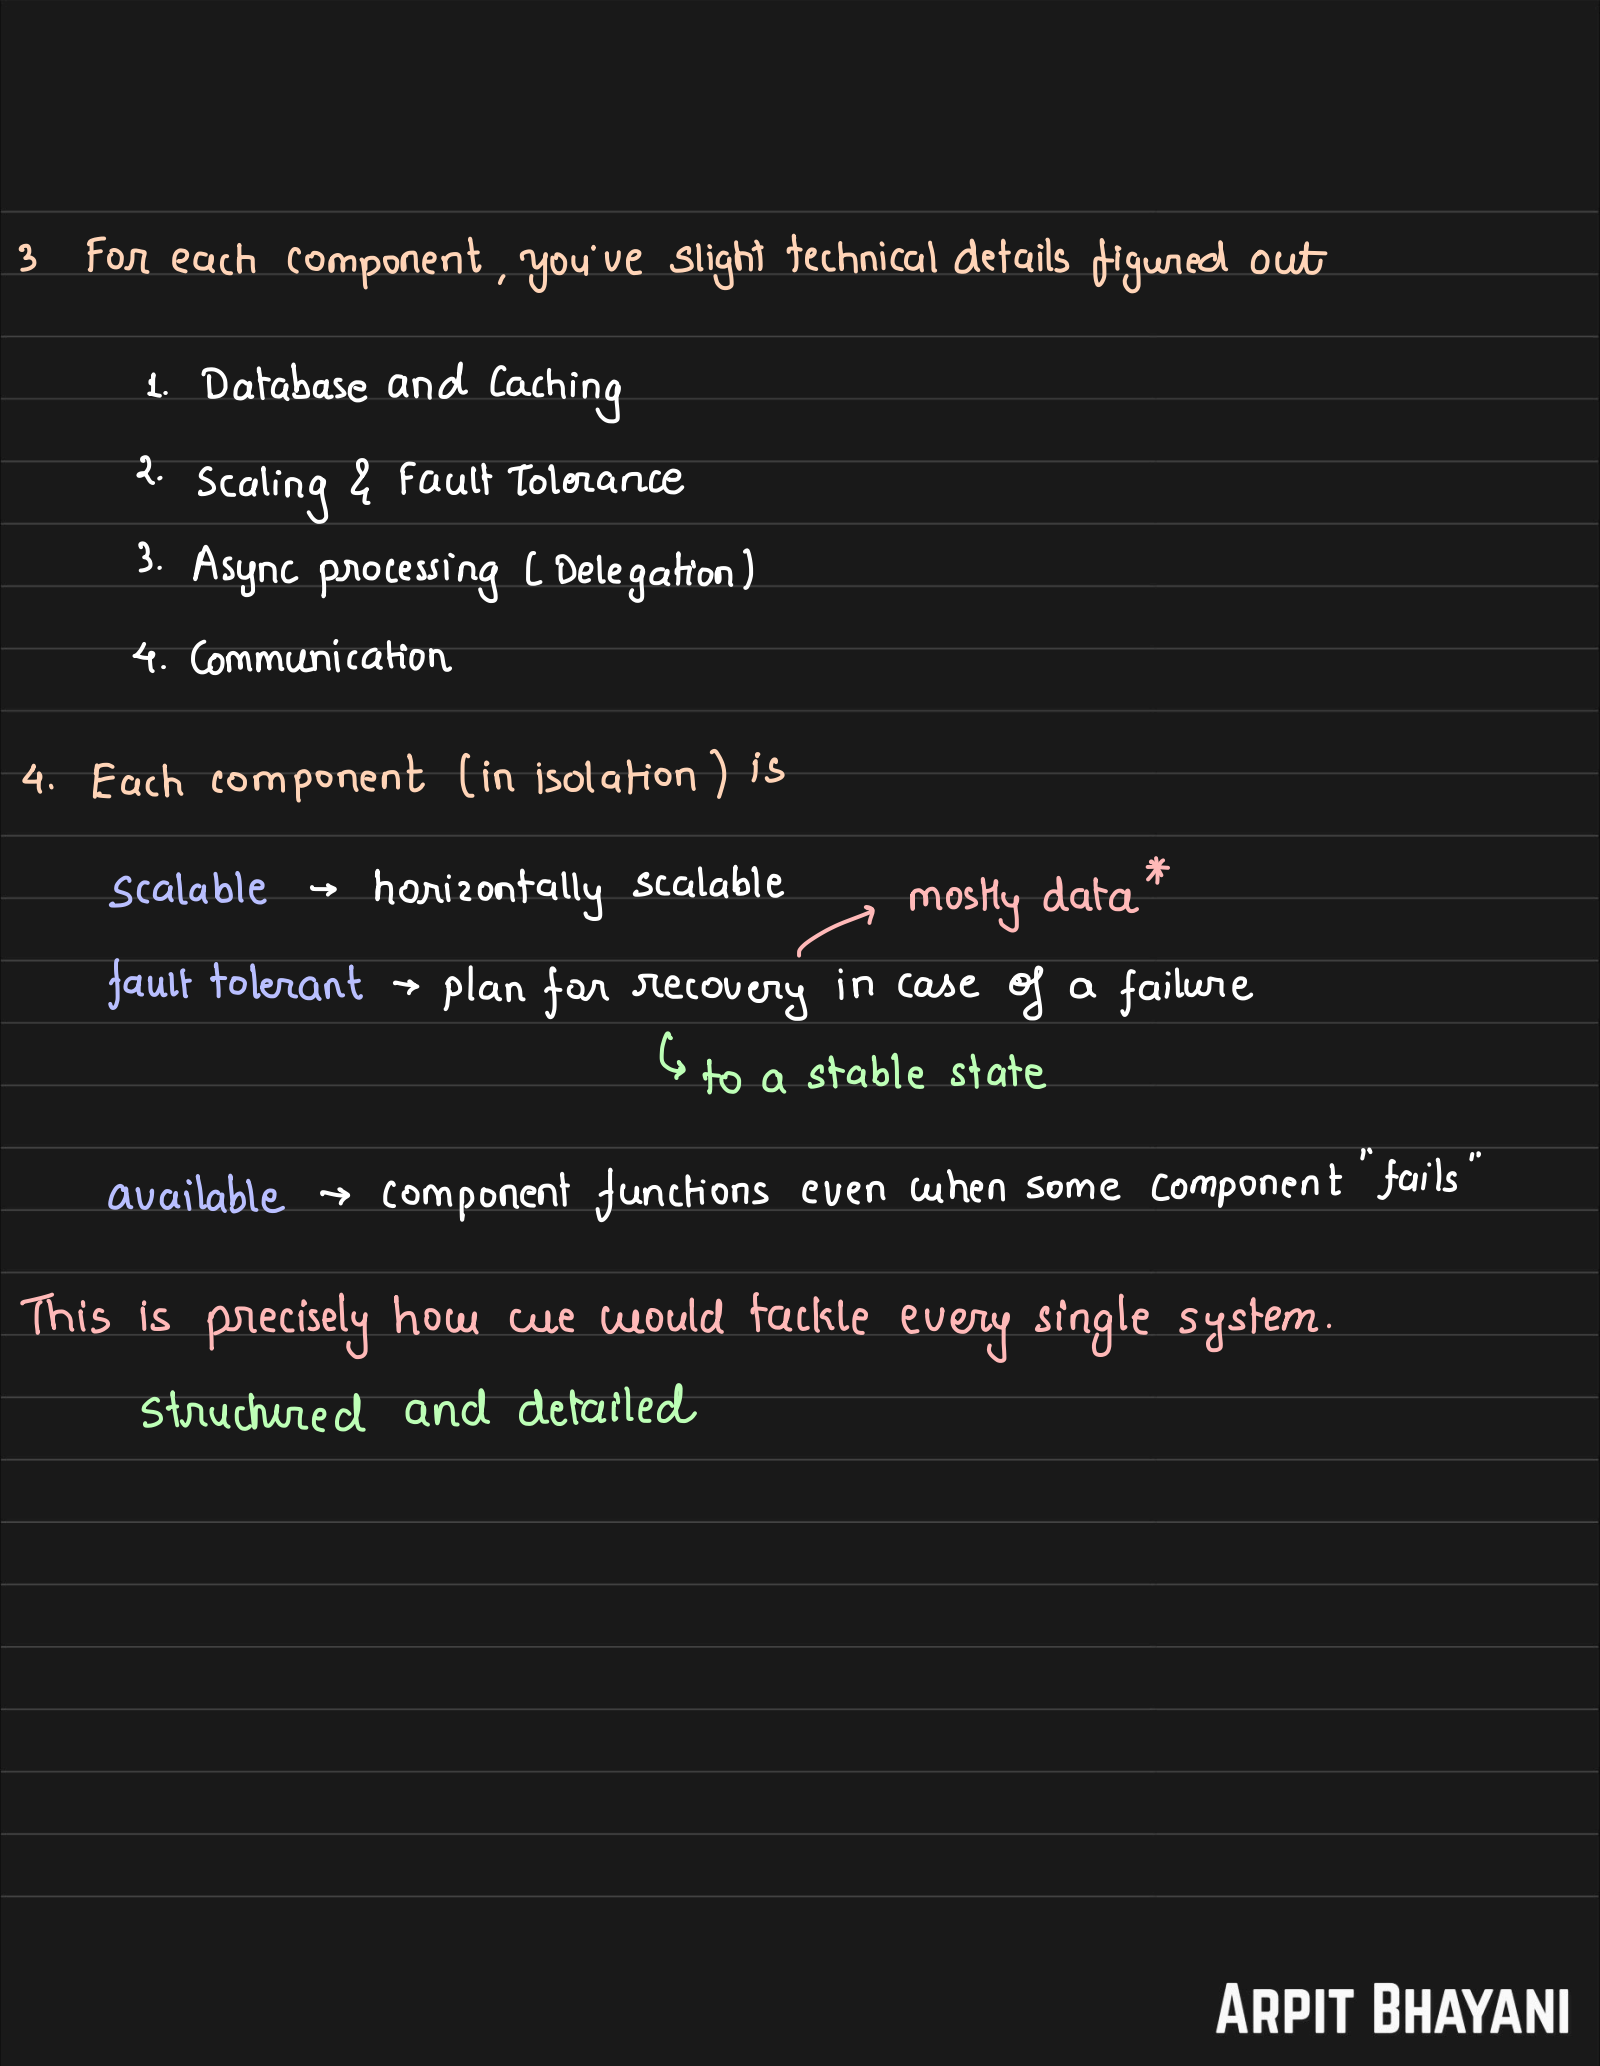 3 For each component, you've slight technical details figured out
1. Database and Caching
2. Scaling & Fault Tolerance
3. Async processing (Delegation)
4. Communication
4. Each component (in isolation) is
scalable → horizontally scalable
mostly data*
fault tolerant → plan for recovery in case of a failure
↳ to a stable state
available → component functions even when some component "fails"
This is precisely how we would tackle every single system.
structured and detailed
ARPIT BHAYANI